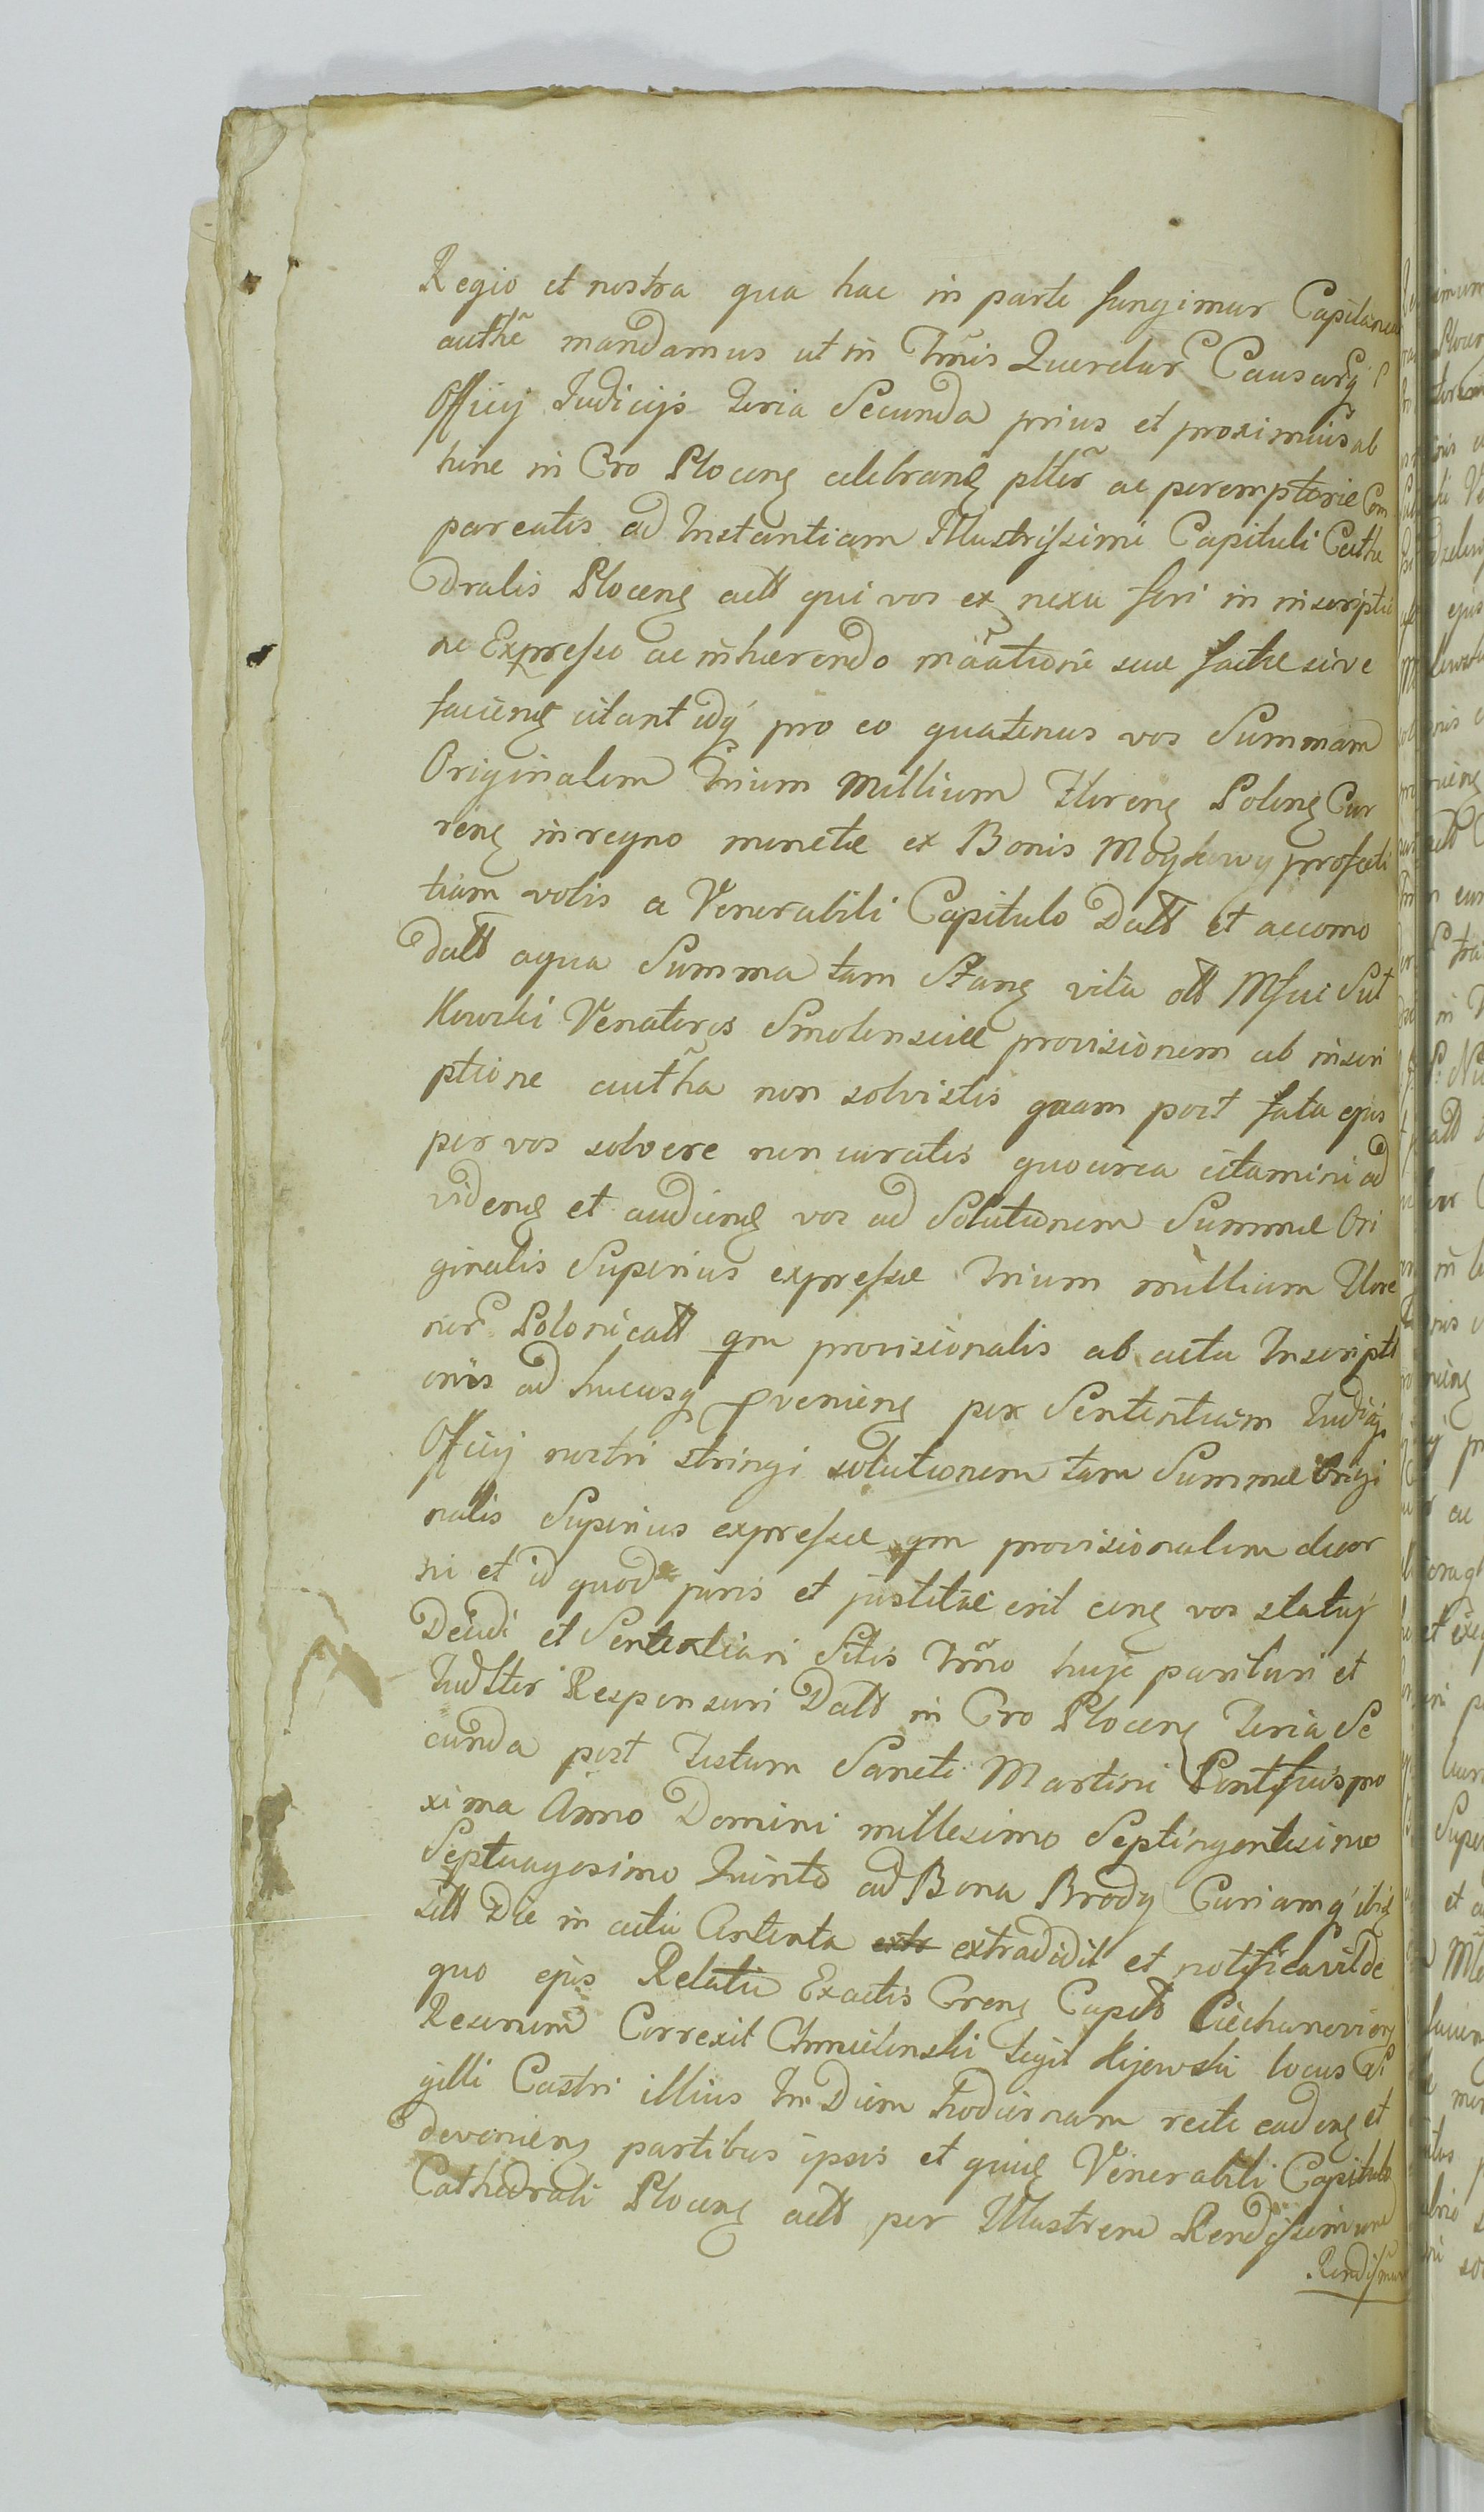 Regio et nostra qua hac in parte fungimur Capitanea
authē mandamus ut in Tmīs Querelar Causarq
Officij Judicijs Feria Secunda prius et proximius ab
hinc in Cro Ploceng celebrang pltēr ac peremptorie Com
pareatis ad Instantiam Illustrissimi Capituli Cathe
dralis Ploceng actt qui vos ex nexu fori in inscriptio
ne Expresso ac inhaerendo mãationi suae factae sive
facieng citant idq pro eo quatenus vos Summam
Originalem Trium Millium Floreng Poleng Cur
reng in regno monetae ex Bonis Moykowy profecti
tiam vobis a Venerabili Capitulo Datt et accomo
datt a qua Summa tam Stang vita ott Mfci Sut
kowski Venatoris Smolensciae provisionem ab inscri
ptione autha non solvistis quam post fata ejus
per vos solvere non curatis quocirca citamini ad
videng et audieng vos ad Solutionem Summae Ori
ginalis Superius expressae Trium millium Flore
nor Polonicatt qm provisionalis ab actu Inscripti
onis ad hucusq pvenieng per Sententiam Judicij
Officij nostri stringi solutionem tam Summae Origi
nalis Superius expressae qm provisionalem decer
ni et id quod juris et justitiae erit cirng vos statuj
Decidi et Sententiari Sitis Tmīo huje parituri et
Judlter Responsuri Datt in Cro Ploceng Feria Se
cunda post Festum Sancti Martini Pontificis pro
xima Anno Domini millesimo Septingentesimo
Septuagesimo Quinto ad Bona Brody Curiamq ibiq
sitt Die in actu Contenta extr extradidit et notificavit de
quo ejus Relatio Ex actis Creng Capitt Ciechanovieng
Rescriptum Correxit Chmielenski legit Kijewski locus Si
gilli Castri illius In Diem hodiernam recte cadeng et
devenieng partibus ipsis et quidg Venerabili Capitulo
Cathedrali Ploceng actt per Illustrem Rendissimum
Rendissimum